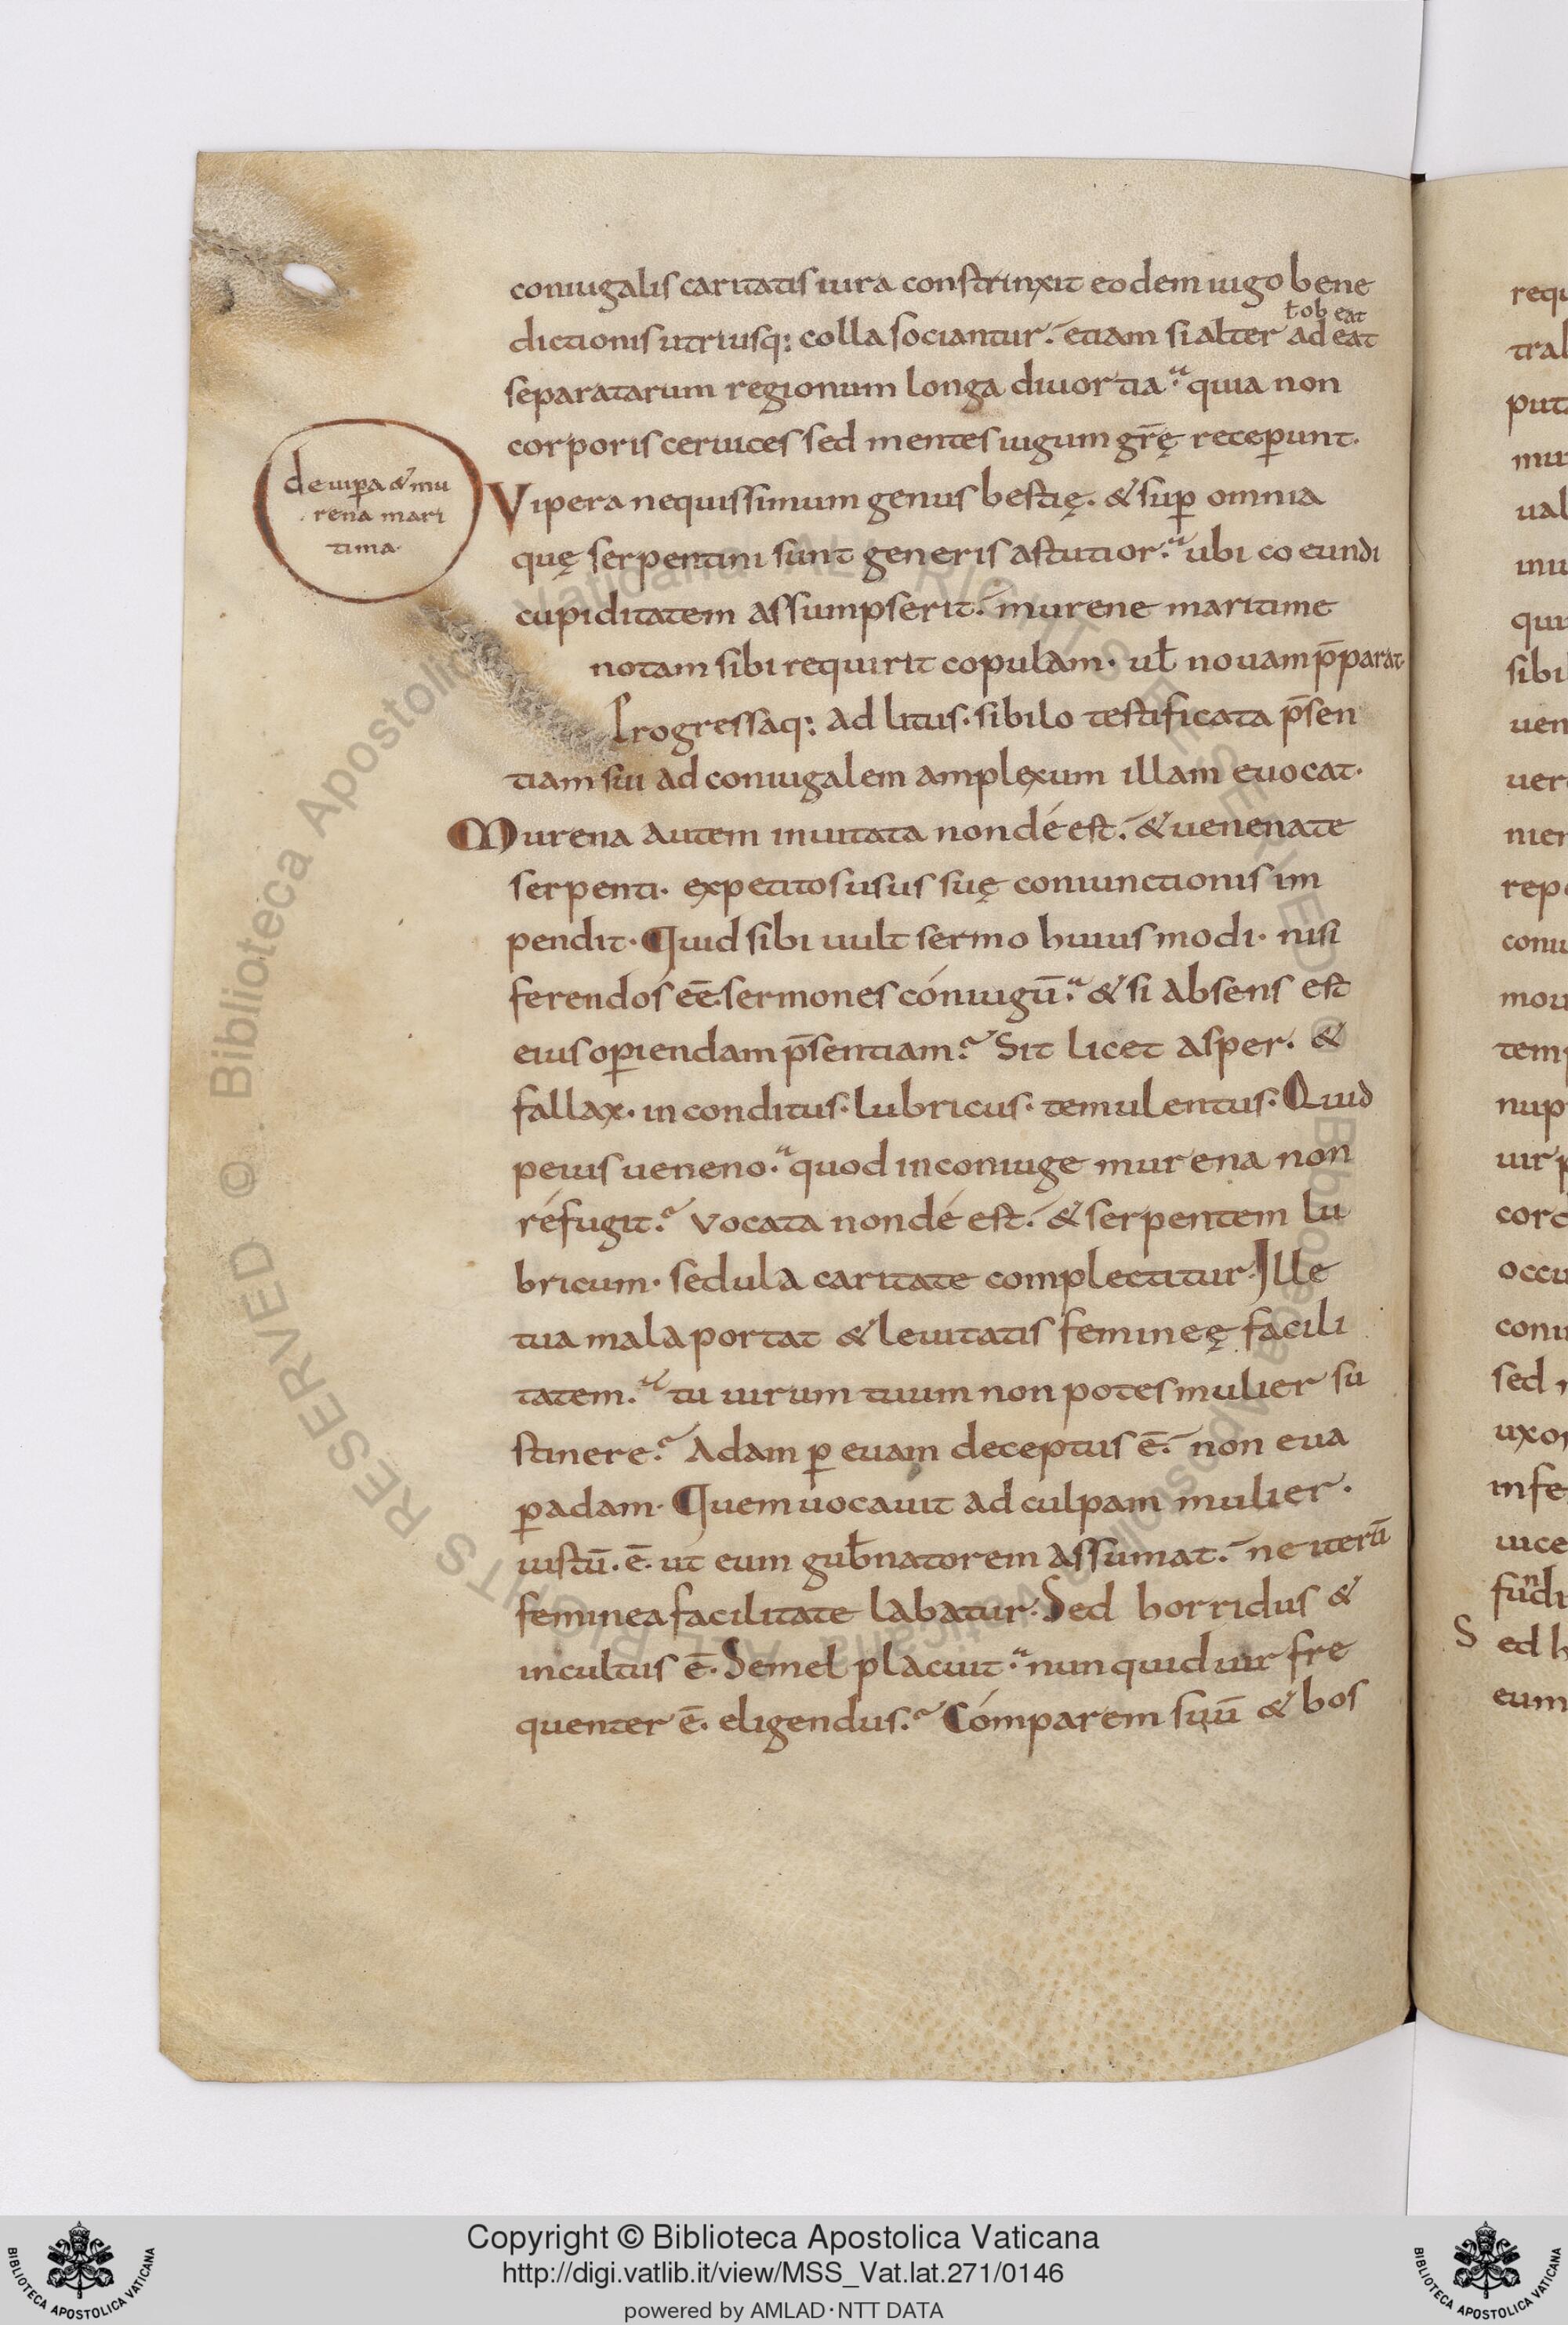 coniugalis caritatis iura constrinxit eodem iugo bene
ł ob eat
dictionis utriusq: colla sociantur. etiam si alter adeat
separatarum regionum longa diuortia. quia non
corporis ceruices sed mentes iugum gr̄ę recep̲unt.
de uip̲a & mu
rena mari
tima
Vipera nequissimum genus bestię. & sup̲ omnia
quę serpentini sunt generis astutior. ubi coeundi
cupiditatem assumpserit. murene maritime
notam sibi requirit copulam. ul̄ nouam p̄parat.
Progressaq: ad litus. sibilo testificata p̄sen
tiam sui ad coniugalem amplexum illam euocat.
Murena autem inuitata non déest. & uenenate
serpenti. expetitos usus suę coniunctionis im
pendit. Quid sibi uult sermo huius modi. nisi
ferendos eē. sermones cóniugū. & si absens est
eius op̲iendam p̄sentiam. Sit licet asper. &
fallax. inconditus. lubricus. temulentus. Quid
peius ueneno. quod in coniuge murena non
réfugit. Vocata non déest. & serpentem lu
bricum. sedula caritate complectitur. Ille
tua mala portat & leuitatis femineę facili
tatem. tu uirum tuum non potes mulier su
stinere. Adam p̲ euam deceptus ē. non eua
p̲ adam. Quem uocauit ad culpam mulier.
iustū. ē. ut eum gub̄natorem assumat. ne iterū
feminea facilitate labatur. Sed horridus &
incultus ē. Semel placuit. nunquid uir fre
quenter ē. eligendus. Cómparem suū & bos
S
Copyright © Biblioteca Apostolica Vaticana
http://digi.vatlib.it/view/MSS_Vat.lat.271/0146
powered by AMLAD·NTT DATA
BIBLIOTECA APOSTOLICA VATICANA
BIBLIOTECA APOSTOLICA VATICANA